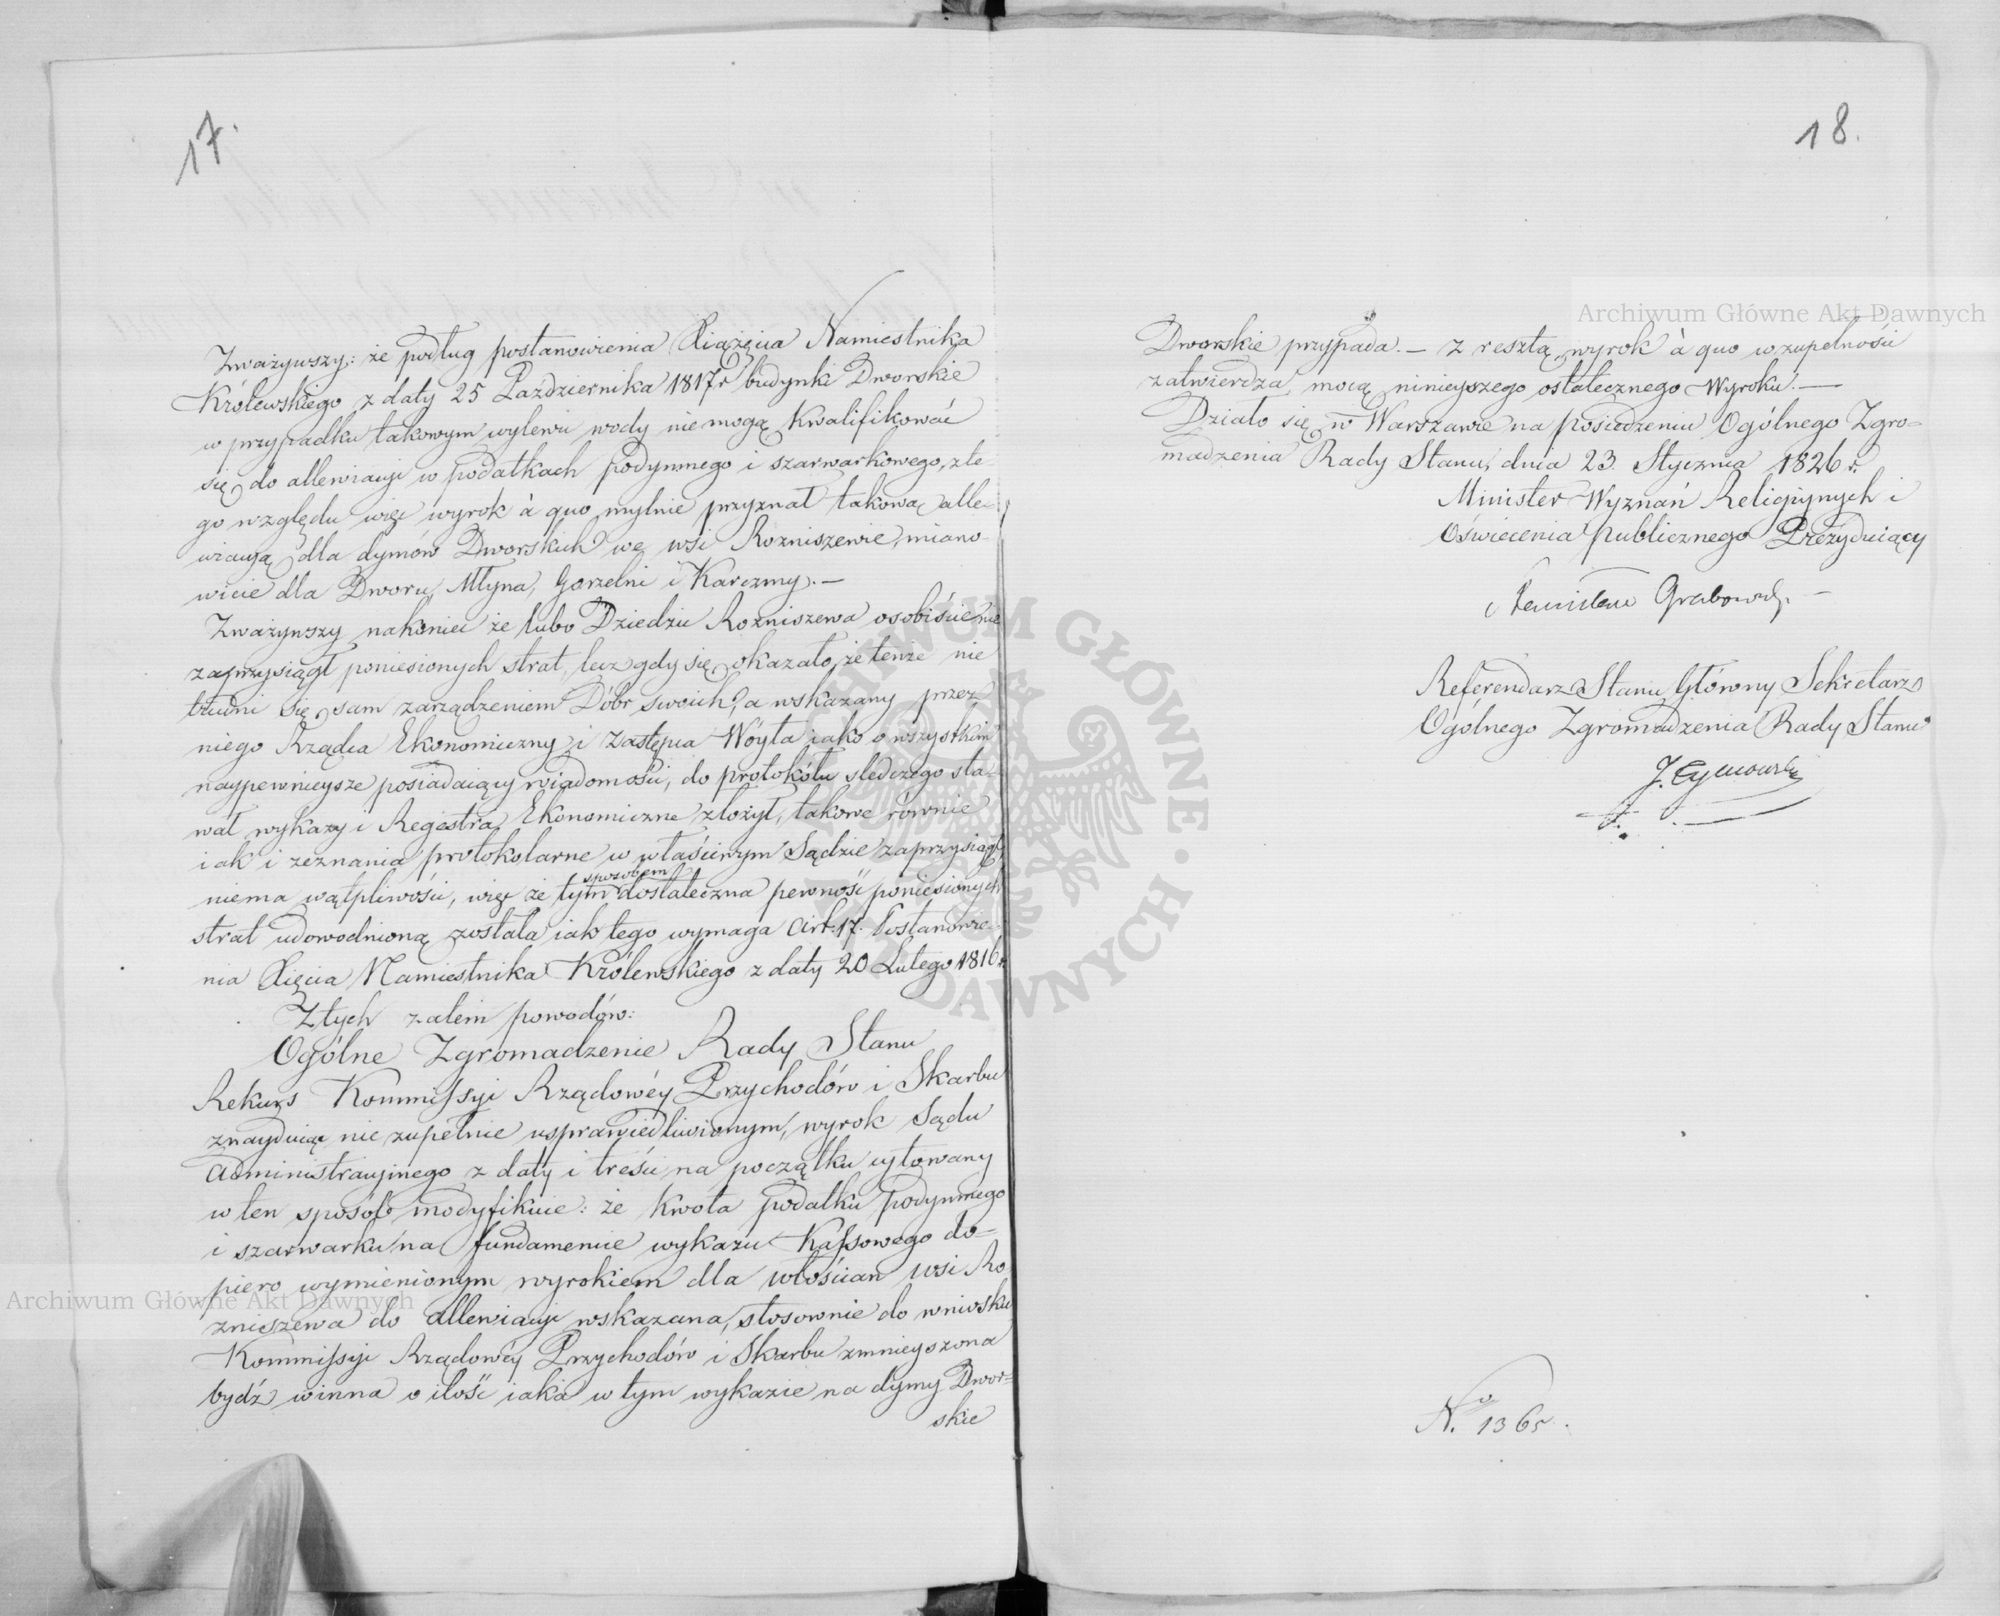 17.
Zważywszy: że podług postanowienia Xiążęcia Namiestnika
Królewskiego z daty 25 Października 1817r budynki Dworskie
w przypadku takowym wylewu wody nie mogą kwalifikować
się do allewiacyi w podatkach podymnego i szarwarkowego, z te-
go względu więc wyrok à quo mylnie przyznał takową alle-
wiacyą dla dymów Dworskich we wsi Rozniszewie, miano-
wicie dla Dworu, Młyna, Gorzelni i Karczmy. —
Zważywszy nakoniec że lubo Dziedzic Rozniszewa osobiście nie
zaprzysiągł poniesionych strat, lecz gdy się okazało, że tenże nie
trudni się sam zarządzeniem Dóbr swoich, a wskazany przez
niego Rządca Ekonomiczny i Zastępca Wóyta iako o wszystkim
naypewnieysze posiadaiący wiadomości, do protokółu śledczego sta-
wał wykazy i Regestra Ekonomiczne złożył, takowe równie
iak i zeznania protokolarne w właściwym Sądzie zaprzysiągł,
niema wątpliwości, więc że tym sposobem dostateczna pewność poniesionych
strat udowodnioną została iak tego wymaga Art. 17. Postanowie-
nia Xięcia Namiestnika Królewskiego z daty 20 Lutego 1816 r.
Z tych zatem powodów:
Ogólne Zgromadzenie Rady Stanu
Rekurs Kommissyi Rządowéy Przychodów i Skarbu
znayduiąc nie zupełnie usprawiedliwionym, wyrok Sądu
Administracyinego z daty i treści na początku cytowany
w ten sposób modyfikuie: że kwota podatku podymnego
i szarwarku na fundamencie wykazu Kassowego do-
piero wymienionym wyrokiem dla włościan wsi Ro
zniszewa do allewiacyi wskazana, stosownie do wniosku
Kommissyi Rządowéy Przychodów i Skarbu zmnieyszona
bydź winna o ilość iaka w tym wykazie na dymy Dwor-
skie
18.
Dworskie przypada. — Z resztą wyrok à quo w zupełności
zatwierdza mocą ninieyszego ostatecznego Wyroku. —
Działo się w Warszawie na posiedzeniu Ogólnego Zgro-
madzenia Rady Stanu, dnia 23. Stycznia 1826 r.
Minister Wyznań Religiynych i
Oświecenia Publicznego Prezyduiący
Stanisław Grabowski. —
Referendarz Stanu Główny Sekretarz
Ogólnego Zgromadzenia Rady Stanu
No. 1365.
Archiwum Główne Akt Dawnych
Archiwum Główne Akt Dawnych
ARCHIWUM GŁÓWNE AKT DAWNYCH